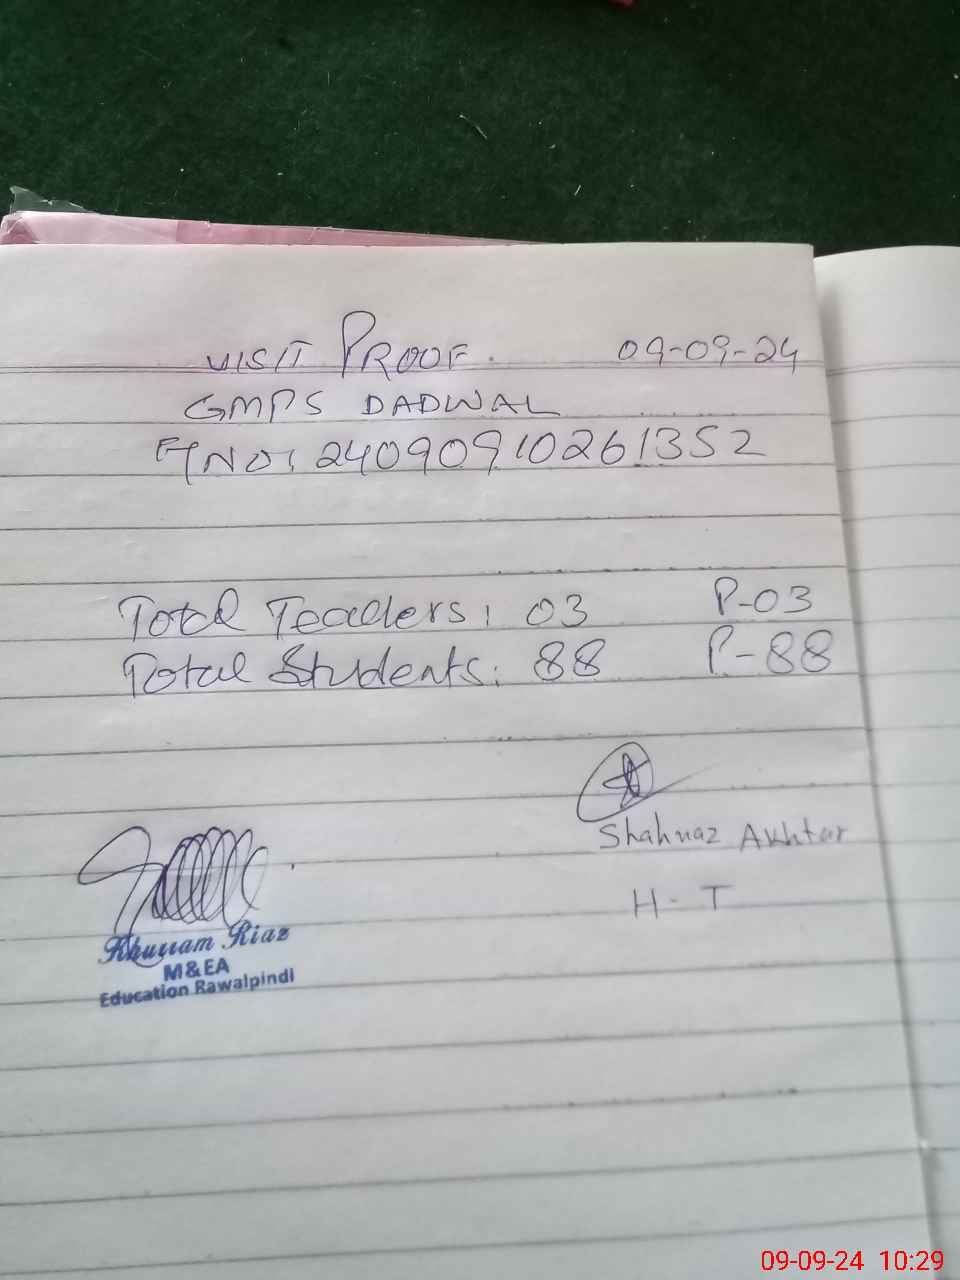 VISIT PROOF. 09-09-24
GMPS DADWAL
NO: 24090910261352
Total Teachers: 03 P-03
Total Students: 88 P-88
Shahnaz Akhtar
H-T
Khurram Riaz
M&EA
Education Rawalpindi
09-09-24 10:29